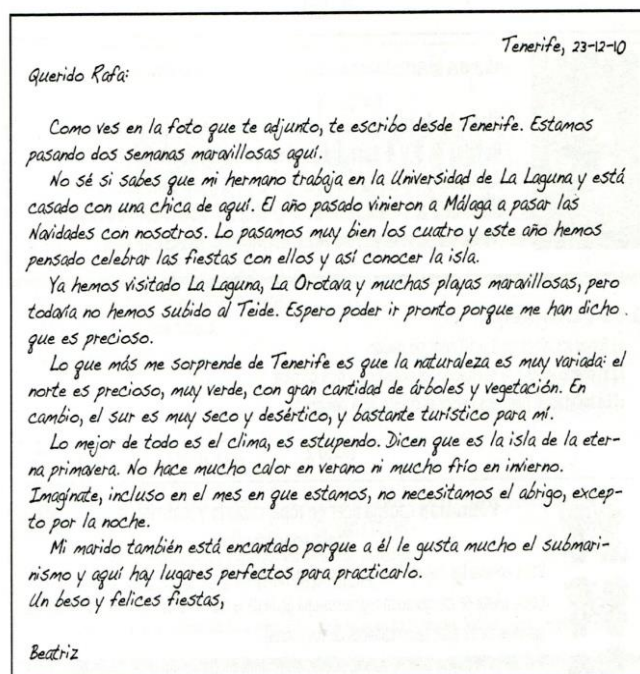 Tenerife, 23-12-10
Querido Rafa:
Como ves en la foto que te adjunto, te escribo desde Tenerife. Estamos
pasando dos semanas maravillosas aquí.
No sé si sabes que mi hermano trabaja en la Universidad de La Laguna y está
casado con una chica de aquí. El año pasado vinieron a Málaga a pasar las
Navidades con nosotros. Lo pasamos muy bien los cuatro y este año hemos
pensado celebrar las fiestas con ellos y así conocer la isla.
Ya hemos visitado La Laguna, La Orotava y muchas playas maravillosas, pero
todavía no hemos subido al Teide. Espero poder ir pronto porque me han dicho
que es precioso.
Lo que más me sorprende de Tenerife es que la naturaleza es muy variada: el
norte es precioso, muy verde, con gran cantidad de árboles y vegetación. En
cambio, el sur es muy seco y desértico, y bastante turístico para mí.
Lo mejor de todo es el clima, es estupendo. Dicen que es la isla de la eter-
na primavera. No hace mucho calor en verano ni mucho frío en invierno.
Imagínate, incluso en el mes en que estamos, no necesitamos el abrigo, excep-
to por la noche.
Mi marido también está encantado porque a él le gusta mucho el submari-
nismo y aquí hay lugares perfectos para practicarlo.
Un beso y felices fiestas,
Beatriz